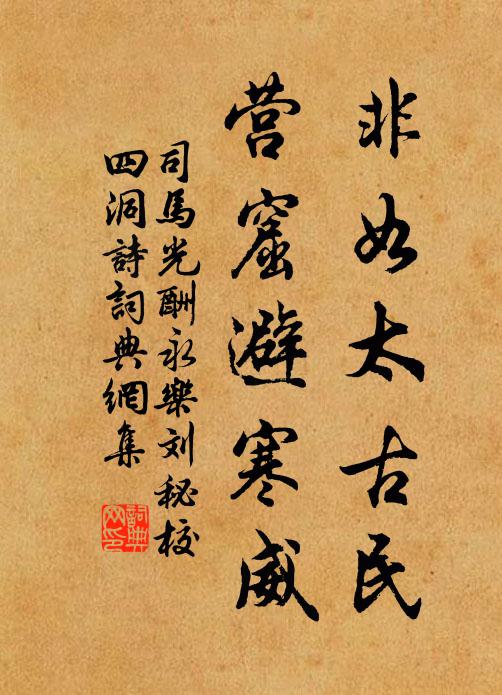 非如太古民
营窟避寒威
司馬光酬永樂刘秘校
四洞詩詞典網集
詞典
网印